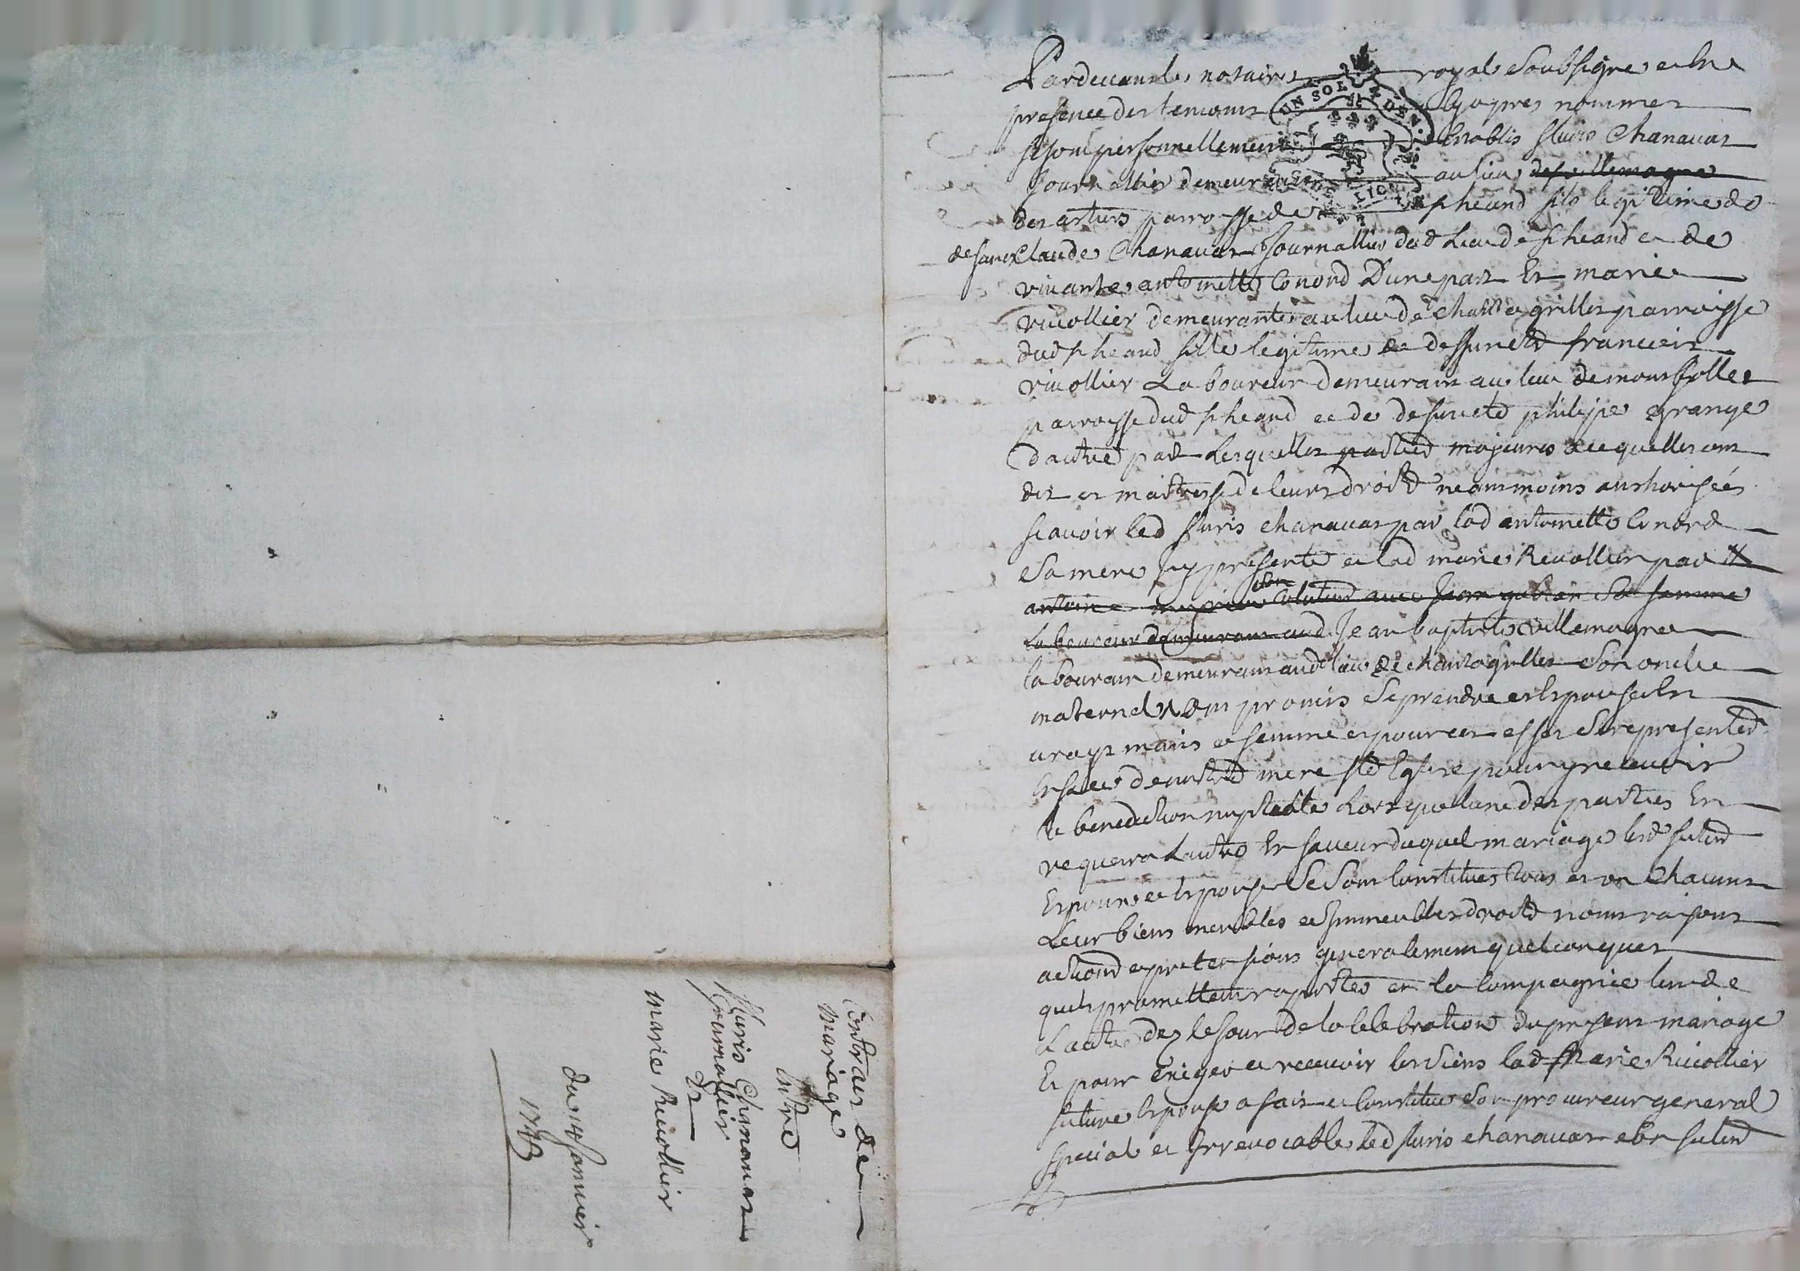 Pardevant le notaire royal soubsigne et En
presence des temoins Cy apres nommes
se sont personnellement Establis fluris Chanavat
Journallier demeurant au lieu de villemagne
des artiers parroisse de st heand fils legitime de
deffunct Claude Chanavat Journallier dud lieu de st heand et de
vivante antoinette Conord D'une part Et marie
rivollier demeurante au lieu de chantegrillet parroisse
dud st heand fille legitime de deffunctz francois
rivollier Laboureur demeurant au lieu de
parroisse dud st heand et de deffuncte philippe grange
d'autre part Lesquelles parties majeures
et maitresse de leurs droitz neammoins authorisées
scavoir led fluris chanavat par lad antoinette Conord
sa mere Icy presente et lad marie Revollier par
antoine
Laboureur demeurant aud Jean baptiste villemagne
laboureur demeurant aud lieu de chantegrillet son oncle
maternel ont promis se prendre et Epouser En
vrays maris et femme et pour cet effet se representer
En face de nostre mere ste Eglise pour y recevoir
la benediction nuptialle Lors que lune des parties En
requerra Lautre En faveur duquel mariage lesd futurs
Epoux et Epouse se sont Constitues tous et un Chacuns
Leur biens meubles et Immeubles droitz noms raisons
actions et pretensions generalement quelconques
quils promettent raportes en la Compagnie lun de
Lautre dez le Jour de la Celebration du present mariage
Et pour Exiger et recevoir les siens lad Marie Rivollier
future Epouse a fait et Constitue son procureur general
special et Irrevocable led fluris chanavat son futur
Contrat de
mariage
Entre
fluris Chanavat
Journallier
Et
marie Revollier
du 14 Janvier